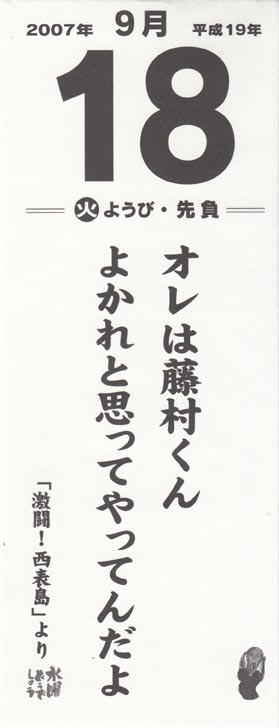 2007年 9月 平成19年
18
火ようび・先負
オレは藤村くん
よかれと思ってやってんだよ
「激闘！西表島」より
水曜
どうで
しょう